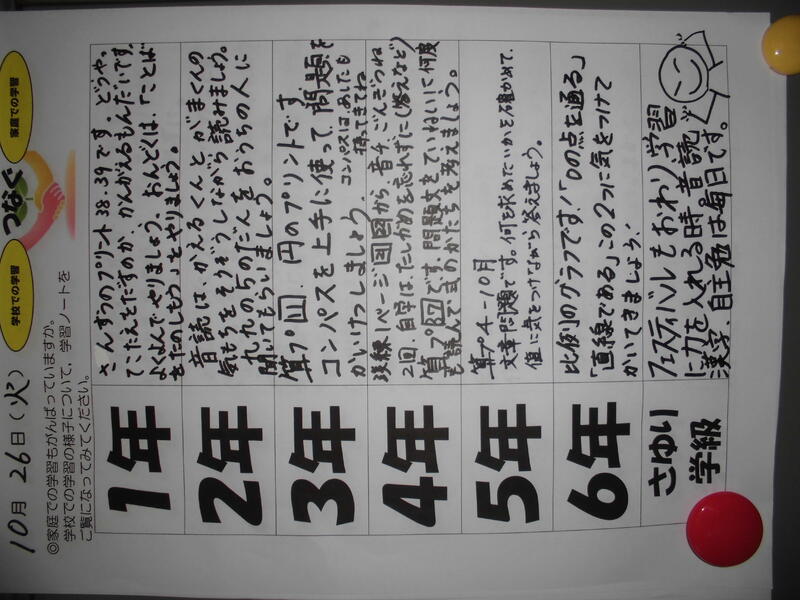 10月26日(火)
学校での学習
つなぐ
家庭での学習
◎家庭での学習もがんばっていますか。
学校での学習の様子について、学習ノートを
ご覧になってみてください。
1年
さんすうのプリント38.39です。どうやっ
てこたえをだすのか、かんがえるもんだいです。
よくよんでやりましょう。おんどくは、「ことば
をたのしもう」をやりましょう。
2年
音読は、かえるくんとがまくんの
気もちをそうぞうしながら読みましょう。
九九の5のだんをおうちの人に
聞いてもらいましょう。
3年
算プ 円のプリントです
コンパスを上手に使って、問題を
かいけつしましょう。
コンパスはあしたも
持ってきてね
4年
1ページ 音チ、ごんぎつね
2回、自学は、たしかめを忘れずに(答えなど)
算プ です。問題文をていねいに何度
も読んで式のかたちを考えましょう。
5年
算プ4-10月
文章問題です。何を求めたいかを確かめて、
値に気をつけながら答えましょう。
6年
比例のグラフです!「0の点を通る」
「直線である」この2つに気をつけて
かいてきましょう!
さゆり
学級
フェスティバルもおわり、学習
に力を入れる時 音読
漢字、自主勉は毎日です。